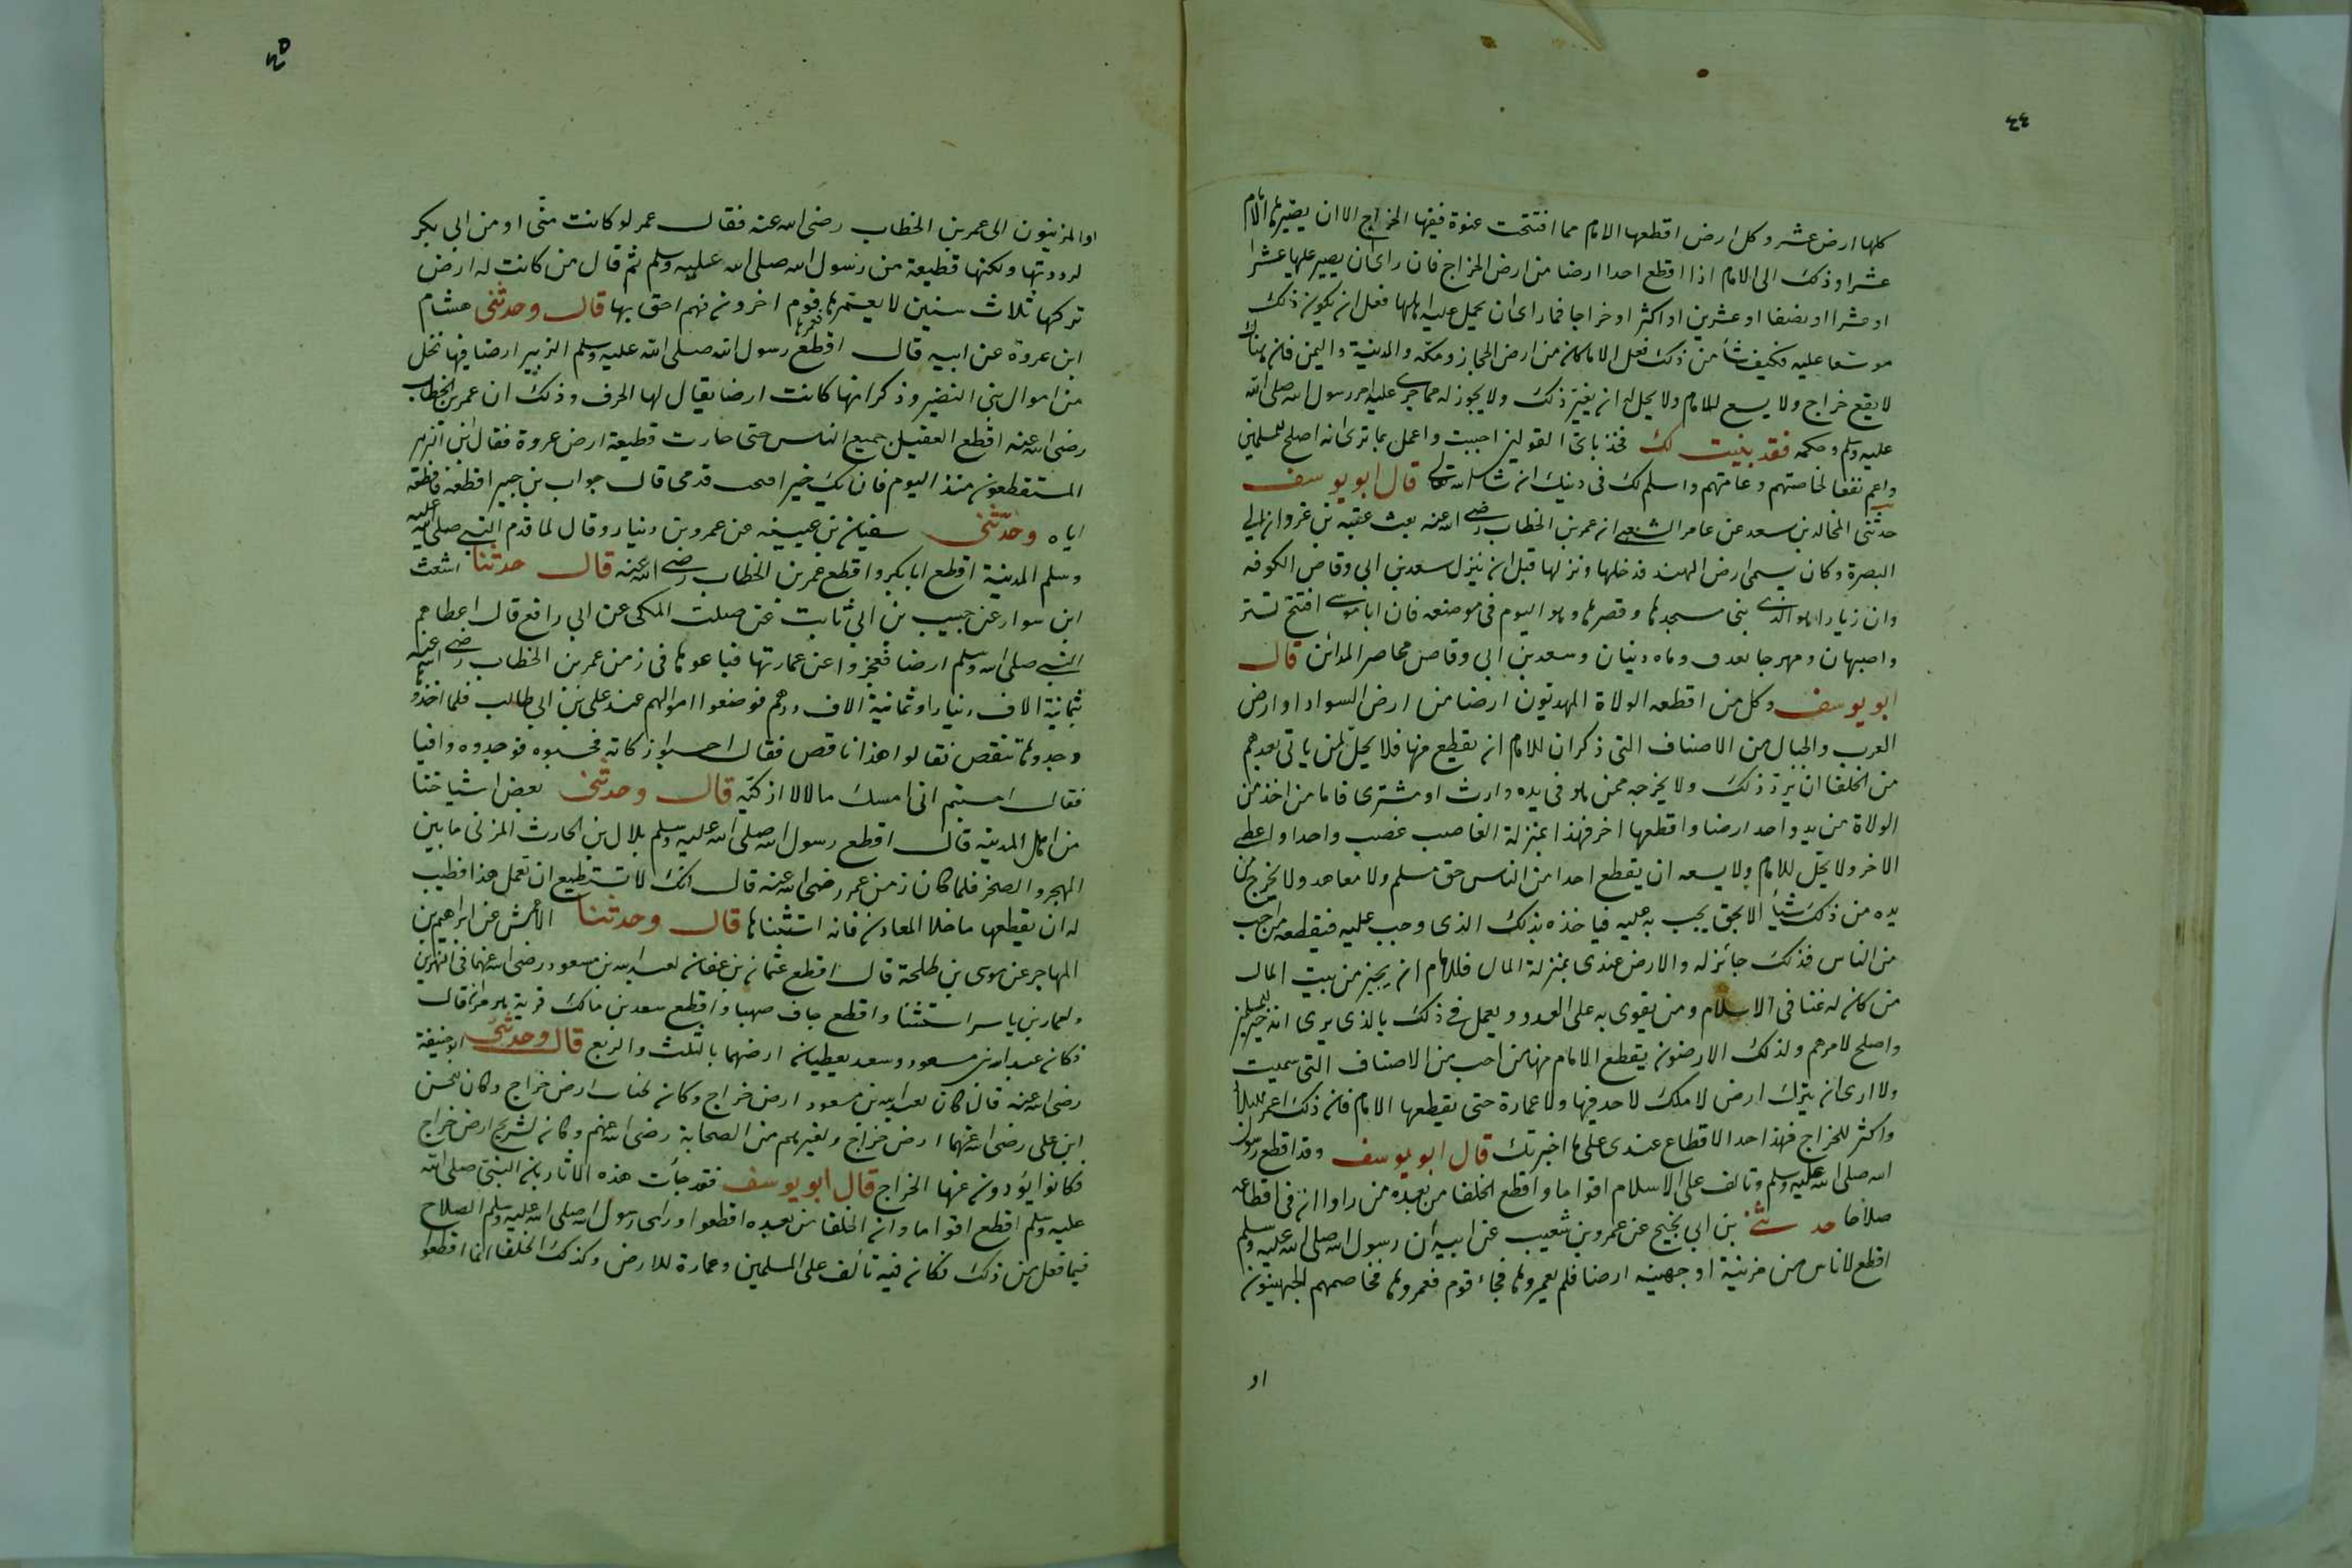 ٤٤
كلها ارض عشر وكل ارض اقطعها الامام مما افتتحت عنوة ففيها الخراج الا ان يصيرها الامام
عشرا وذلك الى الامام اذا اقطع احدا ارضا من ارض الخراج فان راى ان يصير عليها عشرا
او عشرا او نصفا او عشرين او اكثر او خراجا فما راى ان يحمل عليه اهلها فعل ان يكون ذلك
موسعا عليه فكيف شآ من ذلك فعل الا ما كان من ارض الحجاز ومكة والمدينة واليمن فان هناك
لا يقع خراج ولا يسع للامام ولا يحل له ان يغير ذلك ولا يجوز له مما جرى عليه امر رسول الله صلى الله
عليه وسلم وحكمه فقد بينت لك فخذ باى القولين احببت واعمل بما ترى انه اصلح للمسلمين
واعم نفعا لخاصتهم وعامتهم واسلم لك فى دينك ان شا الله تعالى قال ابو يوسف
حدثنى المخالد بن سعد عن عامر الشعبى ان عمر بن الخطاب رضى الله عنه بعث عقبه بن غزوان الى
البصرة وكان يسمى ارض الهند فدخلها ونزلها قبل ان ينزل سعد بن ابى وقاص الكوفه
وان زيادا هو الذى بنى مسجدها وقصرها وهو اليوم فى موضعه فان ابا موسى افتتح تستر
واصبهان ومهرجا نعدف وماه دنيان وسعد بن ابى وقاص محاصر المدائن قال
ابو يوسف وكل من اقطعه الولاة المهديون ارضا من ارض السواد او ارض
العرب والجبال من الاصناف التى ذكر ان للامام ان يقطع منها فلا يحل لمن ياتى بعدهم
من الخلفا ان يرد ذلك ولا يخرجه ممن هو فى يده وارث او مشترى فاما من اخذ من
الولاة من يد واحد ارضا واقطعها اخر فهذا بمنزلة الغاصب غصب واحدا واعطى
الاخر ولا يحل للامام ولا يسعه ان يقطع احدا من الناس حق مسلم ولا معاهد ولا يخرج من
يده من ذلك شيأ الا بحق يجب به عليه فياخذه بذلك الذى وجب عليه فيقطعه من احب
من الناس فذلك جائز له والارض عندى بمنزلة المال فللامام ان يجيز من بيت المال
من كان له غنا فى الاسلام ومن يقوى به على العدو ويعمل فى ذلك بالذى يرى انه خير للمسلمين
واصلح لامرهم ولذلك الارضون يقطع الامام منها من احب من الاصناف التى سميت
ولا ارى ان يترك ارض لا ملك لاحد فيها ولا عمارة حتى يقطعها الامام فان ذلك اعمر للبلاد
واكثر للخراج فهذا احد الاقطاع عندى على ما اخبرتك قال ابو يوسف وقد اقطع رسول
الله صلى الله عليه وسلم وتالف على الاسلام اقواما واقطع الخلفا من بعده من راوا ان فى اقطاعه
صلاحا حدثنى بن ابى نجيح عن عمرو بن شعيب عن ابيه ان رسول الله صلى الله عليه وسلم
اقطع لاناس من مزنية او جهينه ارضا فلم يعمروها فجاء قوم فعمروها فخاصمهم الجهينيون
او
٤٥
او المزينيون الى عمر بن الخطاب رضى الله عنه فقال عمر لو كانت منى او من ابى بكر
لرددتها ولكنها قطيعة من رسول الله صلى الله عليه وسلم ثم قال من كانت له ارض
تركها ثلاث سنين لا يعمرها فعمرها قوم اخرون فهم احق بها قال وحدثنى هشام
ابن عروة عن ابيه قال اقطع رسول الله صلى الله عليه وسلم الزبير ارضا فيها نخل
من اموال بنى النضير وذكر انها كانت ارضا يقال لها الجرف وذلك ان عمر بن الخطاب
رضى الله عنه اقطع العقيق جميع الناس حتى جازت قطيعة ارض عروة فقال اين
المستقطعون منذ اليوم فان يك خير افتحت قدمى قال جواب بن جبير اقطعنه فاقطعه
اياه وحدثنى سفين بن عيينه عن عمرو بن دينار وقال لما قدم النبى صلى الله عليه
وسلم المدينة اقطع ابا بكر واقطع عمر بن الخطاب رضى الله عنه قال حدثنا اشعث
ابن سوار عن حبيب بن ابى ثابت عن صلت المكى عن ابى رافع قال اعطاهم
النبى صلى الله وسلم ارضا فعجزوا عن عمارتها فباعوها فى زمن عمر بن الخطاب رضى الله عنه
ثمانية الاف دينار او ثمانية الاف درهم فوضعوا اموالهم عند على بن ابى طالب فلما اخذوها
وجدوها تنقص فقالوا هذا ناقص فقال احسبوا زكاته فحسبوه فوجدوه وافيا
فقال احسبتم انى امسك مالا لا ازكيه قال وحدثنى بعض اشياخنا
من اهل المدينه قال اقطع رسول الله صلى الله عليه وسلم بلال بن الحارث المزنى ما بين
المهجر والصخر فلما كان زمن عمر رضى الله عنه قال انك لا تستطيع ان تعمل هذا فطيب
له ان يقطعها ما خلا المعادن فانه استثناها قال وحدثنا الاعمش عن ابراهيم بن
المهاجر عن موسى بن طلحة قال اقطع عثمان بن عفان لعبد الله بن مسعود رضى الله عنهما فى النهرين
ولعمار بن ياسر استثنا واقطع جاف صهبا واقطع سعد بن مالك قرية هرمزان قال
فكان عبد الله بن مسعود وسعد يعطيان ارضهما بالثلث والربع قال وحدثنى ابو حنيفة
رضى الله عنه قال كان لعبد الله بن مسعود ارض خراج وكان لخباب ارض خراج وكان للحسن
ابن على رضى الله عنهما ارض خراج ولغيرهم من الصحابة رضى الله عنهم وكان لشريح ارض خراج
فكانوا يؤدون عنها الخراج قال ابو يوسف فقد جأت هذه الاثار بان النبى صلى الله
عليه وسلم اقطع اقواما وان الخلفا من بعده اقطعوا وراى رسول الله صلى الله عليه وسلم الصلاح
فيما فعل من ذلك فكان فيه تألف على المسلمين وعمارة للارض وكذلك الخلفا انما اقطعوا